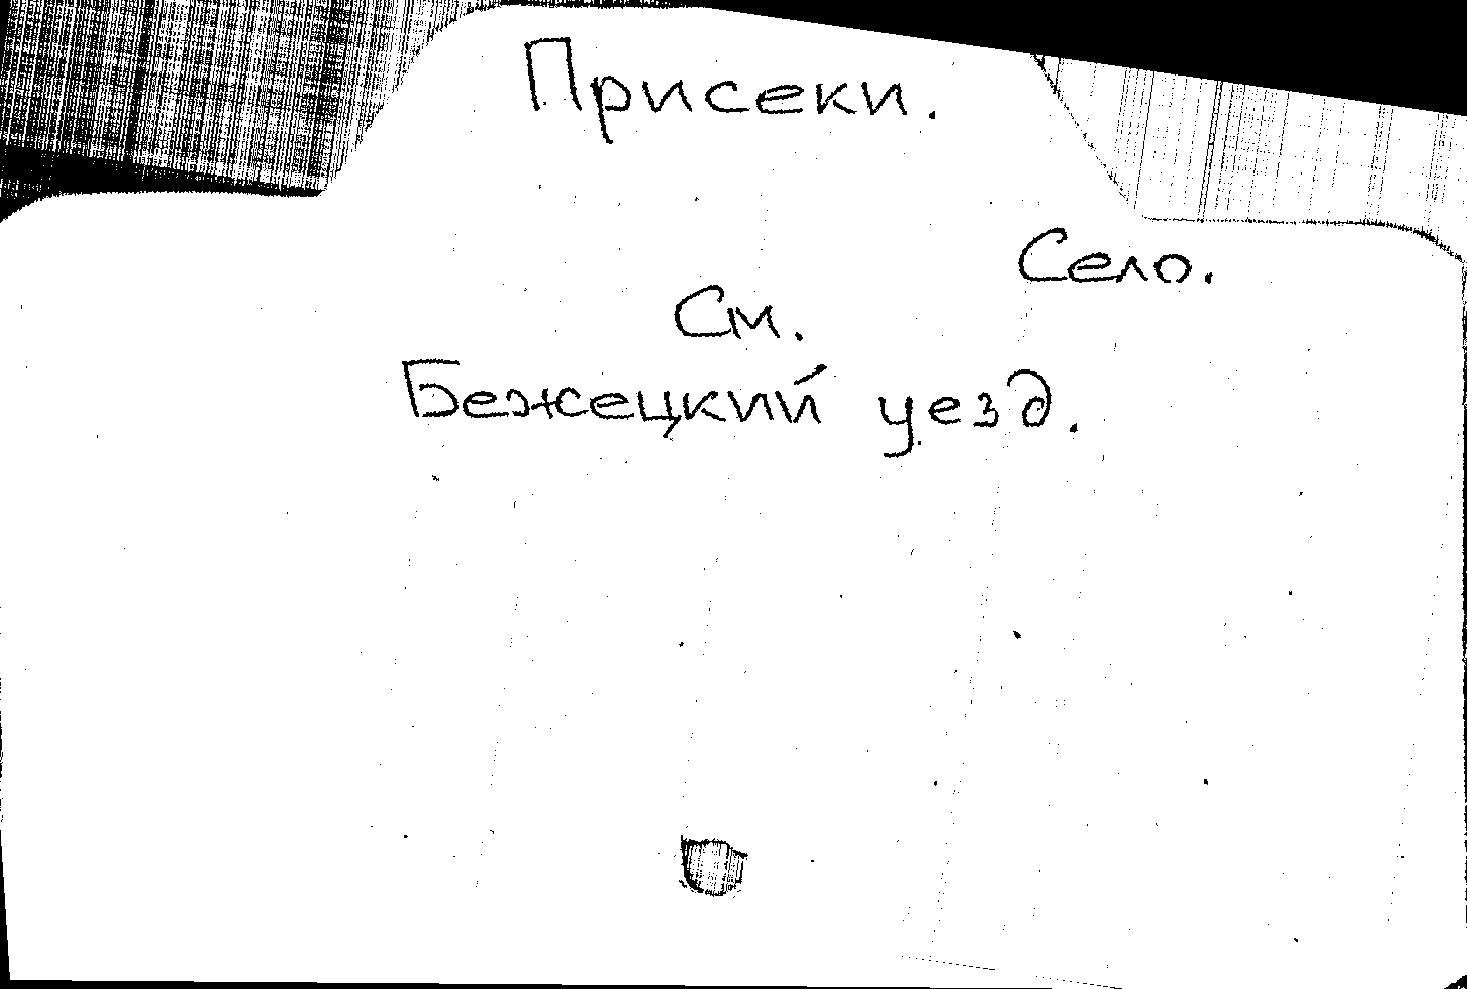 Присеки.
Село.
См.
Бежецкий уезд.